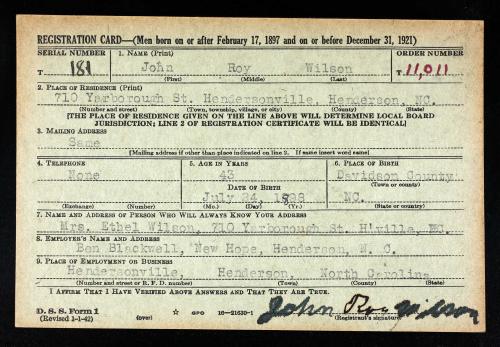 REGISTRATION CARD—(Men born on or after February 17, 1897 and on or before December 31, 1921)
SERIAL NUMBER 1. NAME (Print) ORDER NUMBER
T 181 John Roy Wilson T 11,011
(First) (Middle) (Last)
2. PLACE OF RESIDENCE (Print)
710 Yarborough St. Hendersonville, Henderson, NC.
(Number and street) (Town, township, village, or city) (County) (State)
[THE PLACE OF RESIDENCE GIVEN ON THE LINE ABOVE WILL DETERMINE LOCAL BOARD
JURISDICTION; LINE 2 OF REGISTRATION CERTIFICATE WILL BE IDENTICAL]
3. MAILING ADDRESS
Same
[Mailing address if other than place indicated on line 2. If same insert word same]
4. TELEPHONE 5. AGE IN YEARS 6. PLACE OF BIRTH
None 43 Davidson County
DATE OF BIRTH (Town or county)
July 24, 1898 NC.
(Exchange) (Number) (Mo.) (Day) (Yr.) (State or country)
7. NAME AND ADDRESS OF PERSON WHO WILL ALWAYS KNOW YOUR ADDRESS
Mrs. Ethel Wilson, 710 Yarborough St. H'ville, NC.
8. EMPLOYER'S NAME AND ADDRESS
Ben Blackwell, New Hope, Henderson, N. C.
9. PLACE OF EMPLOYMENT OR BUSINESS
Hendersonville, Henderson, North Carolina
(Number and street or R. F. D. number) (Town) (County) (State)
I AFFIRM THAT I HAVE VERIFIED ABOVE ANSWERS AND THAT THEY ARE TRUE.
D. S. S. Form 1
(Revised 1-1-42) (over) ☆ GPO 16—21630-1 John Roy Wilson
(Registrant's signature)